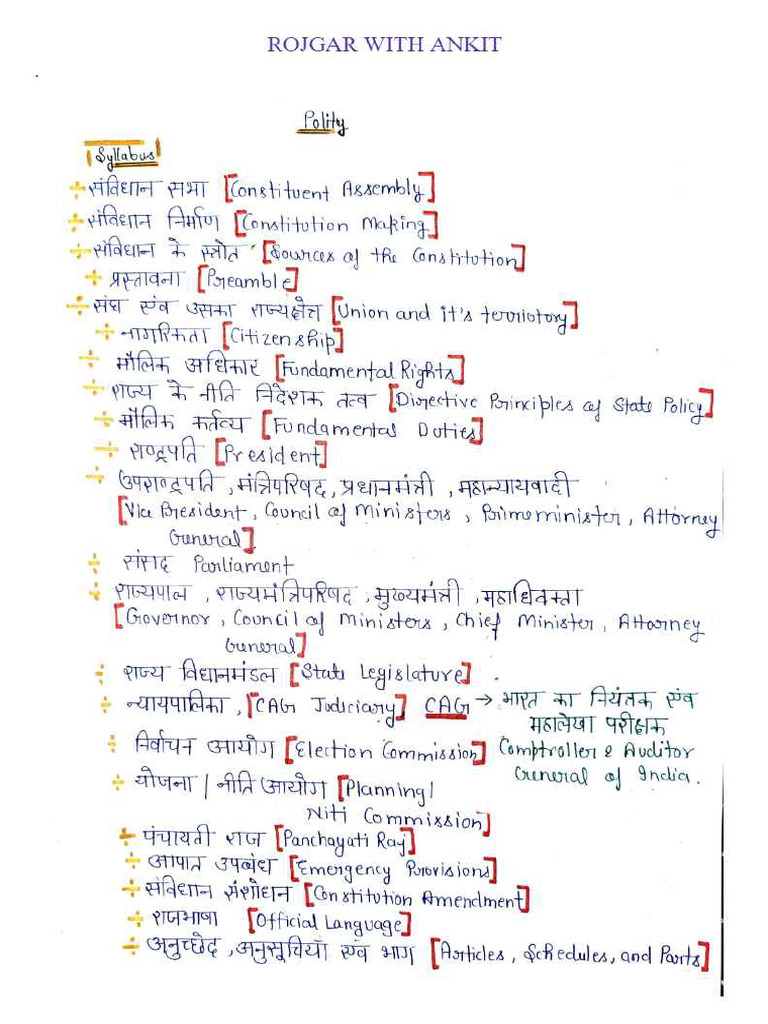 ROJGAR WITH ANKIT
Polity
Syllabus
÷ संविधान सभा [Constituent Assembly]
÷ संविधान निर्माण [Constitution Making]
÷ संविधान के स्त्रोत [Sources of the Constitution]
÷ प्रस्तावना [Preamble]
÷ संघ एंव उसका राज्यक्षेत्र [Union and it's terriotory]
÷ नागरिकता [Citizenship]
÷ मौलिक अधिकार [Fundamental Rights]
÷ राज्य के नीति निदेशक तत्व [Directive Principles of State Policy]
÷ मौलिक कर्तव्य [Fundamental Duties]
÷ राष्ट्रपति [President]
÷ उपराष्ट्रपति, मंत्रिपरिषद, प्रधानमंत्री, महान्यायवादी
[Vice President, Council of Ministers, Primeminister, Attorney
General]
÷ संसद Parliament
÷ राज्यपाल, राज्यमंत्रिपरिषद, मुख्यमंत्री, महाधिवक्ता
[Governor, Council of ministers, Chief Minister, Attorney
General]
÷ राज्य विधानमंडल [State Legislature].
÷ न्यायपालिका, [CAG Judiciary] CAG → भारत का नियंतक एंव
महालेखा परीक्षक
÷ निर्वाचन आयोग [Election Commission] Comptroller & Auditor
General of India.
÷ योजना / नीति आयोग [Planning/
Niti Commission]
÷ पंचायती राज [Panchayati Raj]
÷ आपात उपबंध [Emergency Provisions]
÷ संविधान संशोधन [Constitution Amendment]
÷ राजभाषा [Official Language]
÷ अनुच्छेद, अनुसूचियाँ एंव भाग [Articles, Schedules, and Parts]